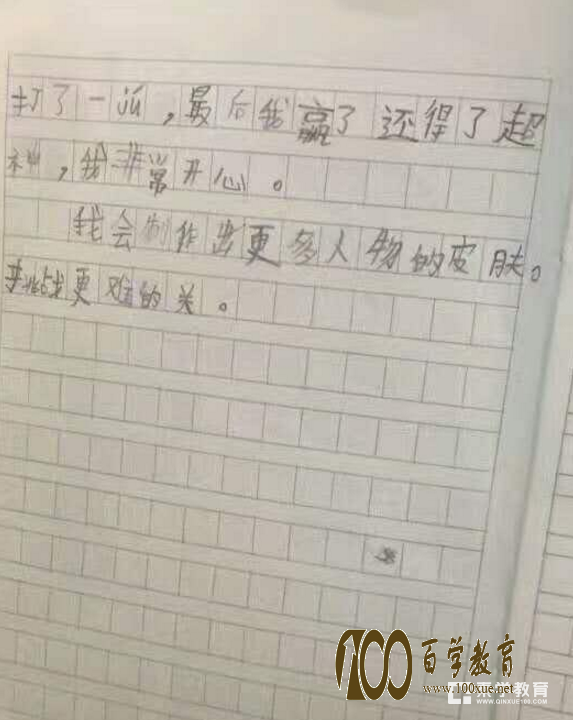 打了一派，最后我赢了还得了超
神，我非常开心。
我会制作出更多人物的皮肤。
挑战更难的关。
100 百学教育
www.100xue.net
亲学教育
WWW.QINXUE100.COM